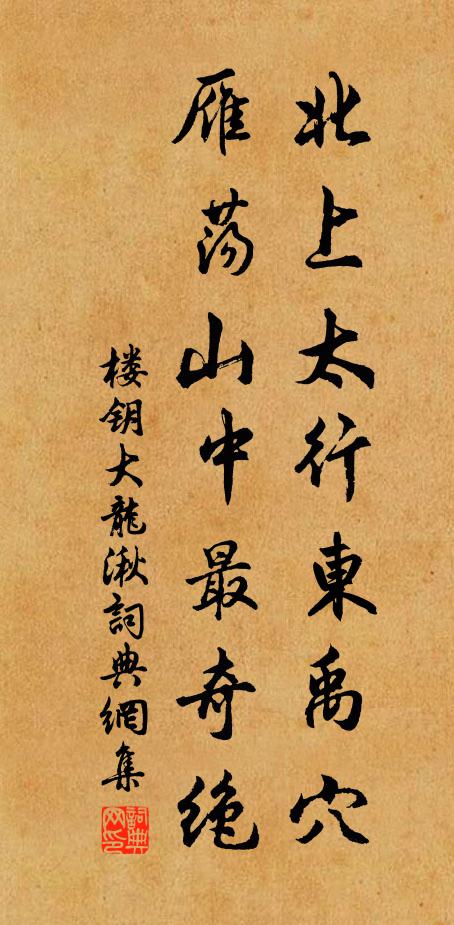 北上太行東禹穴
雁荡山中最奇绝
楼钥大龍湫詞典網集
詞典网印